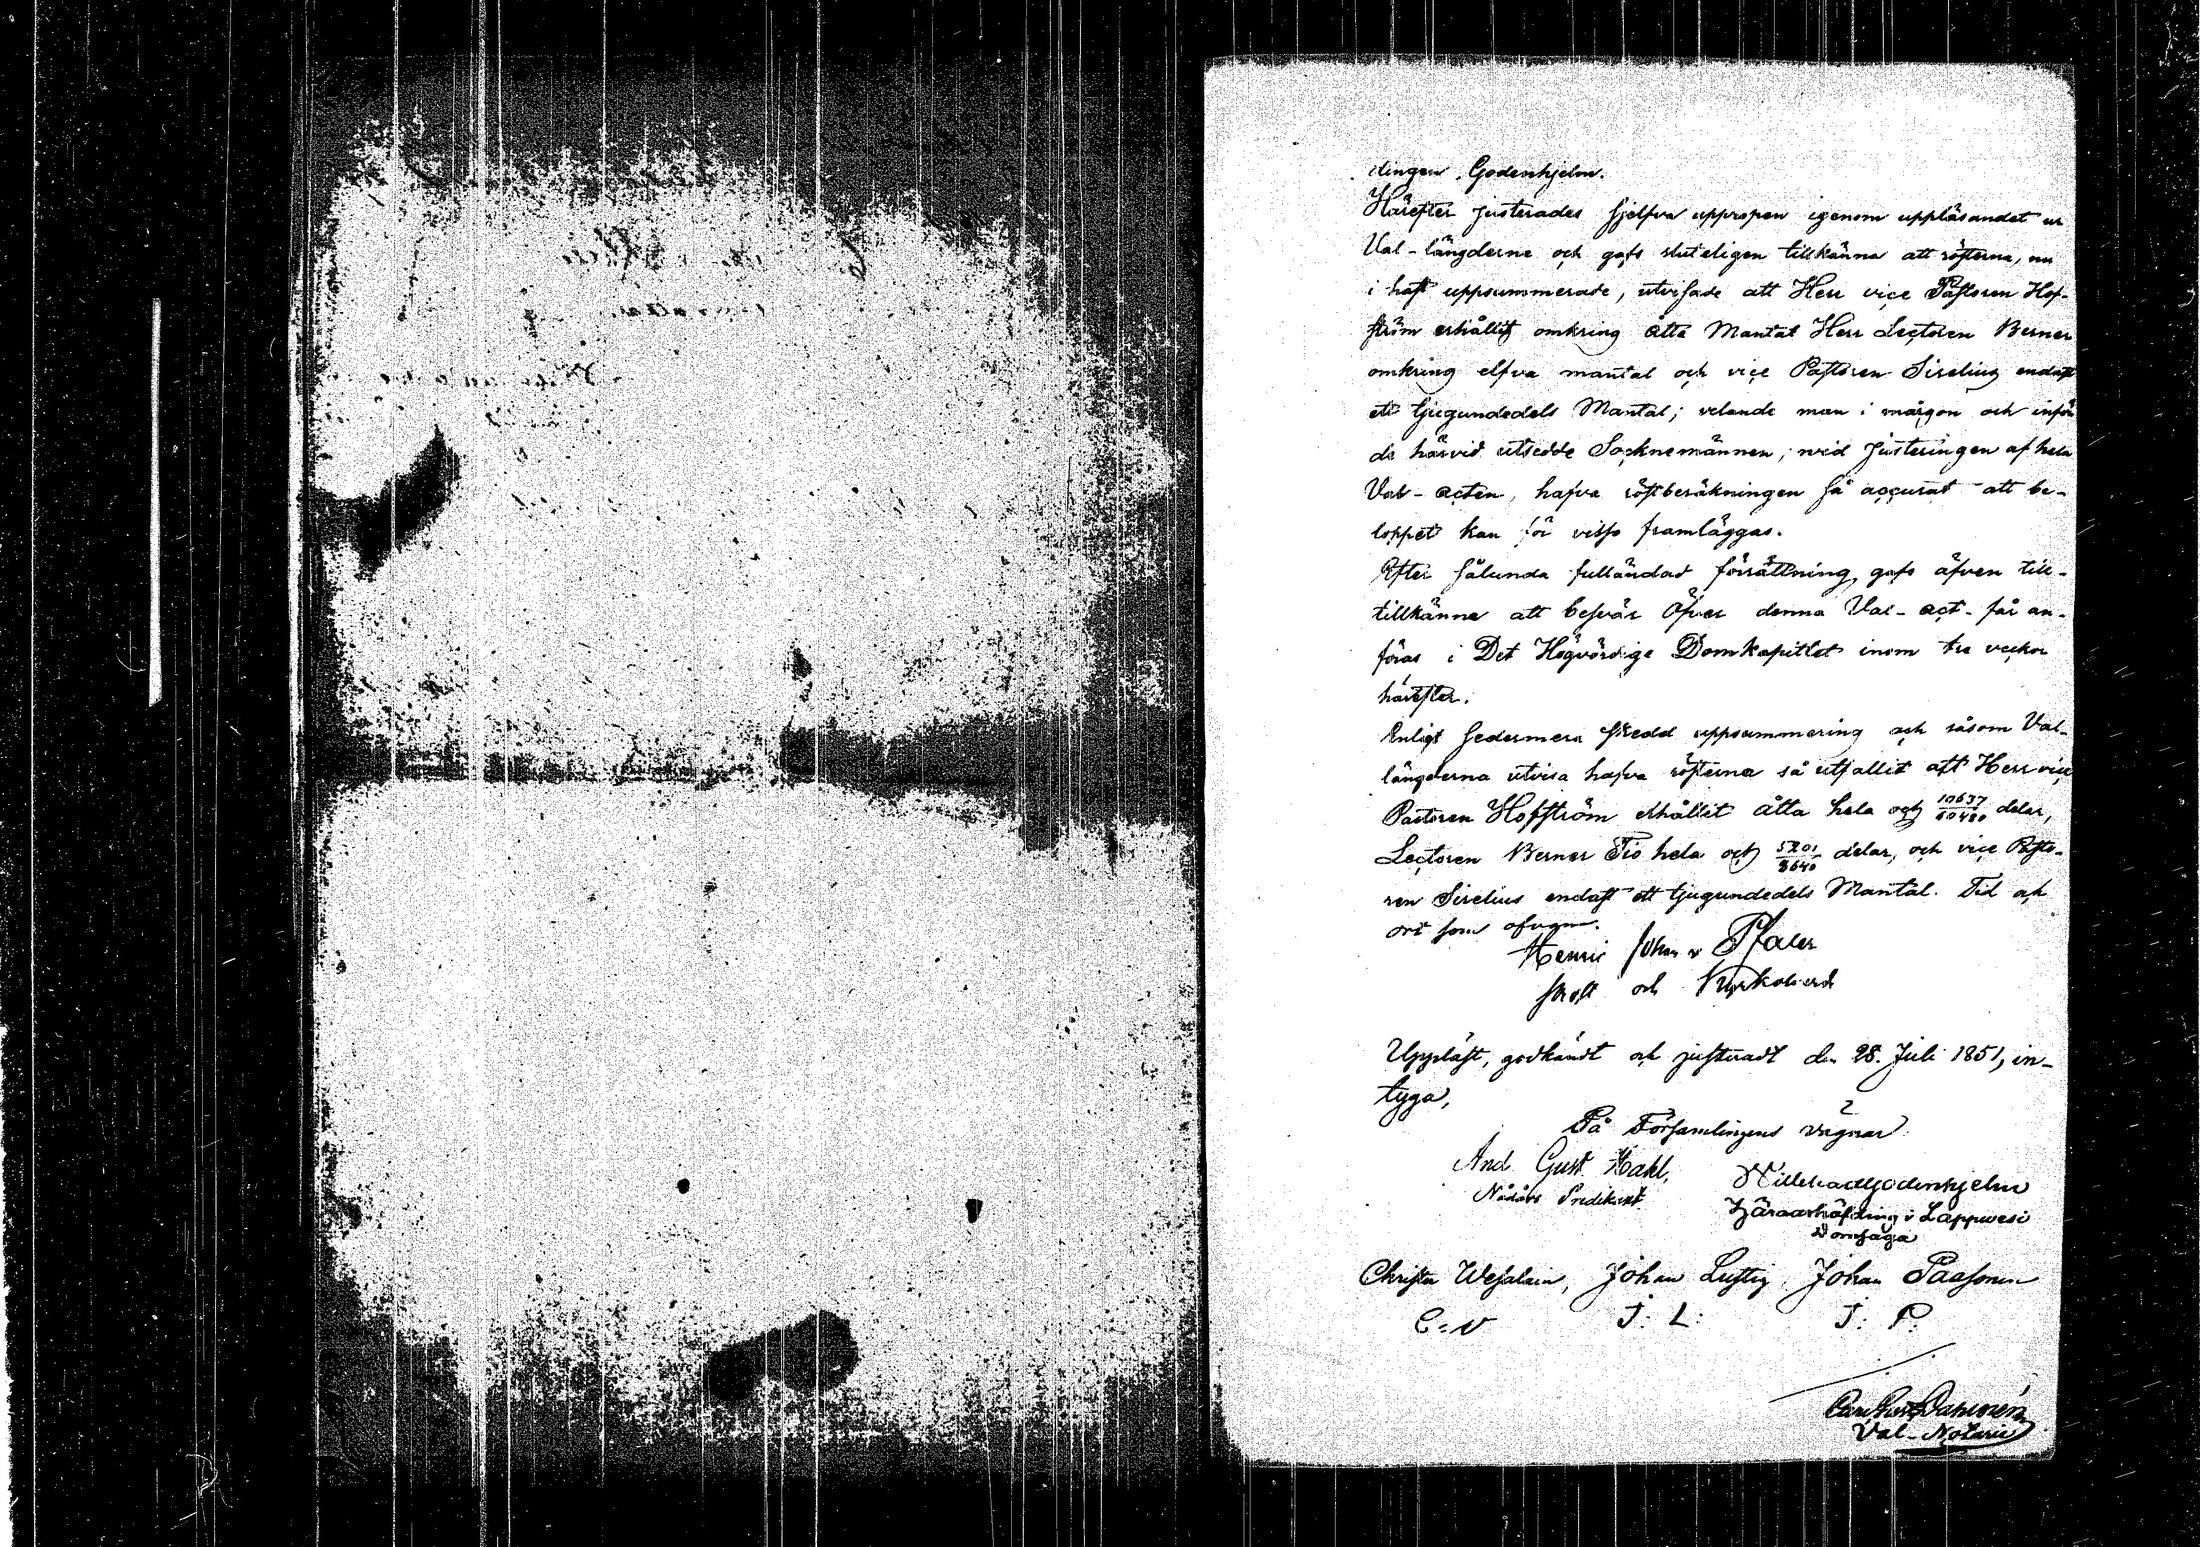 dingen Godenhjelm.
Härefter justerades sjelfva uppropen igenom uppläsandet ur
Val-längderne och gafs sluteligen tillkänna att rösterna, nu
i hast uppsummerade, utvisade att Herr vice Pastoren Hof-
ström erhållit omkring åtta Mantal Herr Lectoren Berner
omkring elfva mantal och vice Pastoren Sirelius endast
ett tjugundedels Mantal; velande man i morgon och inför
de härvid utsedde Socknemännen, vid Justeringen af hela
Val-acten, hafva röstberäkningen så accurat att be-
loppet kan för visso framläggas.
Efter sålunda fulländad förrättning, gafs äfven till-
tillkänna att besvär öfver denna Val-act får an-
föras i Det Högvördige Domkapitlet inom tre veckor
härefter.
Enligt sedermera skedd uppsummering och såsom Val-
längderna utvisa hafva rösterna så utfallit att Herr vice
Pastoren Hofström erhållit åtta hela och 10637/60480 delar,
Lectoren Berner Tio hela och 5201/8640 delar, och vice Pasto-
ren Sirelius endast ett tjugundedels Mantal. Tid och
ort som ofvan.
Henric Johan v Pfaler
Prost och Kyrkoherd
Uppläst, godkändt och justeradt den 28. Juli 1851, in-
tyga,
På Församlingens vägnar
And. Gust. Hahl, Willehad Godenhjelm
Nådårs Predikant. Häradshöfding i Lappwesi
Domsaga
Christer Wesalain, Johan Lustig, Johan Paasonen
C: W J: L: J: P:
Val-Notarie